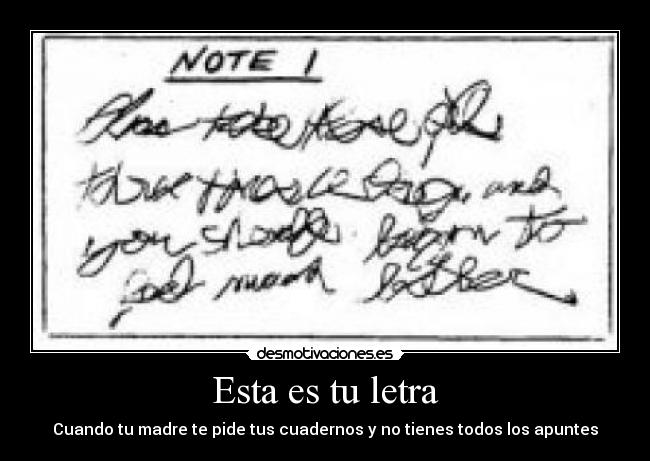 NOTE 1
Please take these pills
three times a day, and
you should begin to
feel much better
desmotivaciones.es
Esta es tu letra
Cuando tu madre te pide tus cuadernos y no tienes todos los apuntes